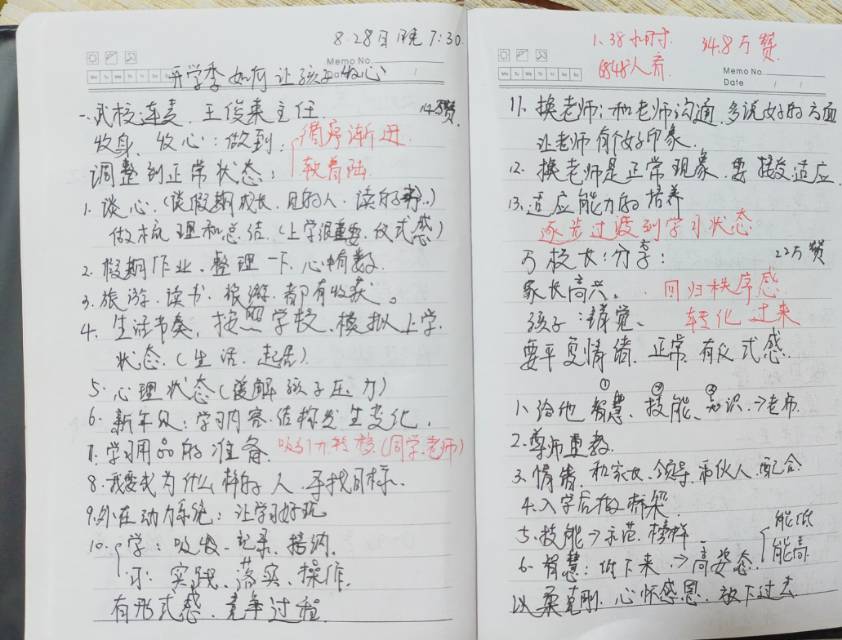 8.28日晚7:30.
Memo No.
Date
开学季如何让孩子收心
一、武校连麦、王俊来主任 14万赞
收身、收心:做到: 循序渐进
调整到正常状态: 软着陆
1. 谈心、(谈假期成长、见的人、读的书..)
做梳理和总结、(上学很重要、仪式感)
2. 假期作业、整理一下、心有数.
3. 旅游、读书、都有收获。
4. 生活节奏、按照学校、模拟上学
状态、(生活、起居)
5. 心理状态(缓解孩子压力)
6. 新年级:学习内容、结构发生变化.
7. 学习用品的准备. 吸引力转移(同学、老师)
8. 我要成为什么样的人、寻找目标.
9. 外在动力系统:让学习好玩
10. 学:吸收、记录、揣纳.
习:实践、落实、操作.
有形式感、竞争过程.
1.38小时. 34.8万赞
6848人齐
Memo No.
Date
11. 换老师:和老师沟通、多说好的方面
让老师有个好印象.
12. 换老师是正常现象、要接受适应
13. 适应能力的培养
逐步过渡到学习状态
万校长:分享: 22万赞
家长高兴。 回归秩序感
孩子:睡觉、 转化过来
要平复情绪、正常有仪式感.
① ② ③
1. 给他智慧、技能、知识.→老师.
2. 尊师重教.
3. 情绪、和家女、领导、币伙人、配合
4. 入学后做桥梁.
5. 技能→示范、榜样.
6. 智慧:低下来→高姿态. 能低 能高
以柔克刚、心怀感恩、放下过去.